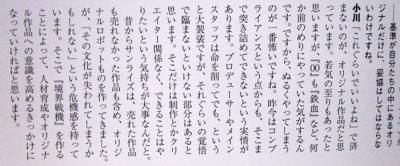 ――基準が自分たちの中にあるオリ
ジナルだけに、妥協はしてはならな
いわけですね。
小川　「これぐらいでいいよね」で済
まないのが、オリジナル作品だと思
っています。若気の至りもあったと
思いますが、『00』も『鉄血』など、何
か前のめりにやっていた気がするん
です。ですから、ぬるくやってしまう
のが一番怖いですね。昨今はコンプ
ライアンスという点からも、そこま
で突き詰めてできないという実情が
あります。プロデューサーやメイン
スタッフは命を削ってでも、という
と大袈裟ですが、それぐらいの覚悟
で臨まないといけない部分はあると
思います。そこだけは制作とかクリ
エイター関係なく、できることはや
りたいという気持ちが大事なんだと。
昔からサンライズは、売れた作品
も売れなかった作品も含め、オリジ
ナルロボットものを作ってきました
が、「その文化が失われてしまうか
もしれない」という危機感を持って
います。そこで『境界戦機』を作る
ことによって、人材育成やオリジナ
ル作品への意識を高めるきっかけに
なっていければと思います。